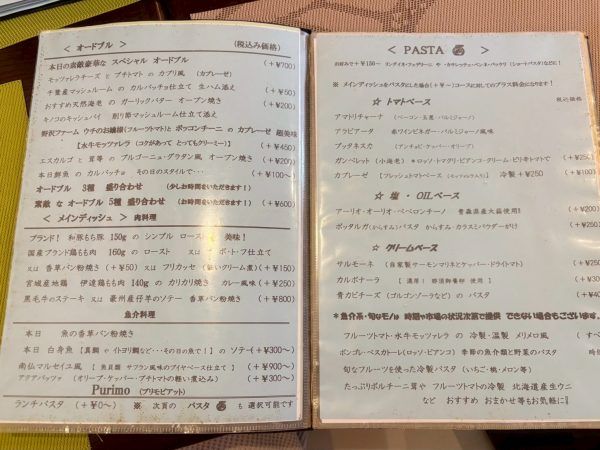 ＜ オードブル ＞ (税込み価格)
本日の素敵豪華な スペシャル オードブル (+¥700)
モッツァレラチーズと プチトマトの カプリ風 (カプレーゼ)
千葉産マッシュルームの カルパッチョ仕立て 生ハム添え (+¥50)
おすすめ天然海老の ガーリックバター オーブン焼き (+¥200)
キノコのキッシュパイ 削り節マッシュルーム仕立て添え
贅沢ファーム ウチのお嬢様(フルーツトマト)と ボッコンチーニの カプレーゼ 超美味
【水牛モッツァレラ (コクがあって とってもクリーミー)】 (+¥450)
エスカルゴと 茸等の ブルゴーニュ・グラタン風 オーブン焼き (+¥200)
本日鮮魚の カルパッチョ その日のスタイルで… (+¥100～)
オードブル 3種 盛り合わせ (少しお時間をいただきます!)
素敵な オードブル 5種 盛り合わせ (お時間をいただきます!) (+¥600)
＜ メインディッシュ ＞ 肉料理
ブランド! 和豚もち豚 150gの シンプル ロースト 美味!
国産ブランド鶏もも肉 160gの ロースト 又は ポ・ト・フ仕立て
又は 香草パン粉焼き (+¥50) 又は フリカッセ (軽いクリーム煮) (+¥150)
宮城産地鶏 伊達鶏もも肉 140gの カリカリ焼き カレー風味 (+¥250)
黒毛牛のステーキ 又は 豪州産仔羊のソテー 香草パン粉焼き (+¥850)
魚介料理
本日 魚の香草パン粉焼き
本日 白身魚【真鯛 や イトヨリ鯛など・・その日の魚で!】の ソテー (+¥300～)
南仏マルセイユ風 【魚貝類 サフラン風味のブイヤベース仕立て】 (+¥900～)
アクアパッツァ (オリーブ・ケッパー・プチトマトの軽い煮込み) (+¥300～)
Purimo (プリモピアット)
ランチパスタ (+¥0～) ※ 次頁の パスタ も 選択可能です
＜ PASTA ＞
お好みで+¥150～ リングイネ・フェデリーニ や・カサレッチェ・ペンネ・パッケリ (ショートパスタ)などに!
※ メインディッシュをパスタにした場合(+¥～)コースに対してのプラス料金になります!
☆ トマトベース 税込価格
アマトリチャーナ (ベーコン・玉葱・パルミジャーノ)
アラビアータ 赤ワインビネガー・パルミジャーノ風味
プッタネスカ (アンチョビ・ケッパー・オリーブ)
ガンベレット (小海老) *ロッソ・トマクリ・ビアンコ・クリーム・ピリ辛トマトで (+¥250)
カプレーゼ 【フレッシュトマトベース (モッツァレラ入り)】 冷製+¥250 (+¥100)
☆ 塩 ・ OILベース
アーリオ・オーリオ・ペペロンチーノ 青森県産大蒜使用!! (+¥200)
ボッタルガ(からすみ) パスタ からすみ・カラスミパウダーがけ (+¥
☆ クリームベース
サルモーネ (自家製サーモンマリネとケッパー・ドライトマト) (+¥350)
カルボナーラ 【 濃厚! 那須御養卵 使用 】 (+¥300)
青カビチーズ (ゴルゴンゾーラなど) の パスタ (+¥
＊魚介系・旬なモノは 時期や市場の状況次第で提供 できない場合もございます。
フルーツトマト・水牛モッツァレラ の 冷製・温製 メリメロ風 (+¥
ボンゴレ・ペスカトーレ(ロッソ・ビアンコ) 季節の魚介類と野菜のパスタ 時価
旬なフルーツを使った冷製パスタ (いちご・桃・メロン等) 時価
たっぷりポルチーニ茸や フルーツトマトの 冷製 北海道産生ウニ
など おすすめ おまかせ等もお気軽に!